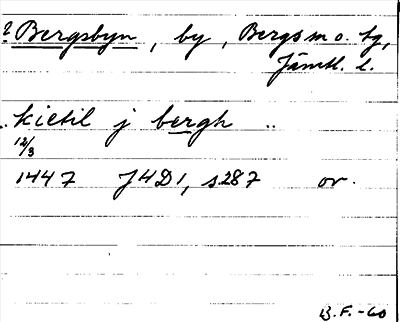 ? Bergsbyn, by, Bergs m o. tg,
Jämtl. l.
.. kietil j bergh ..
12/3
1447 J4D1, s287 or.
B.F.-60